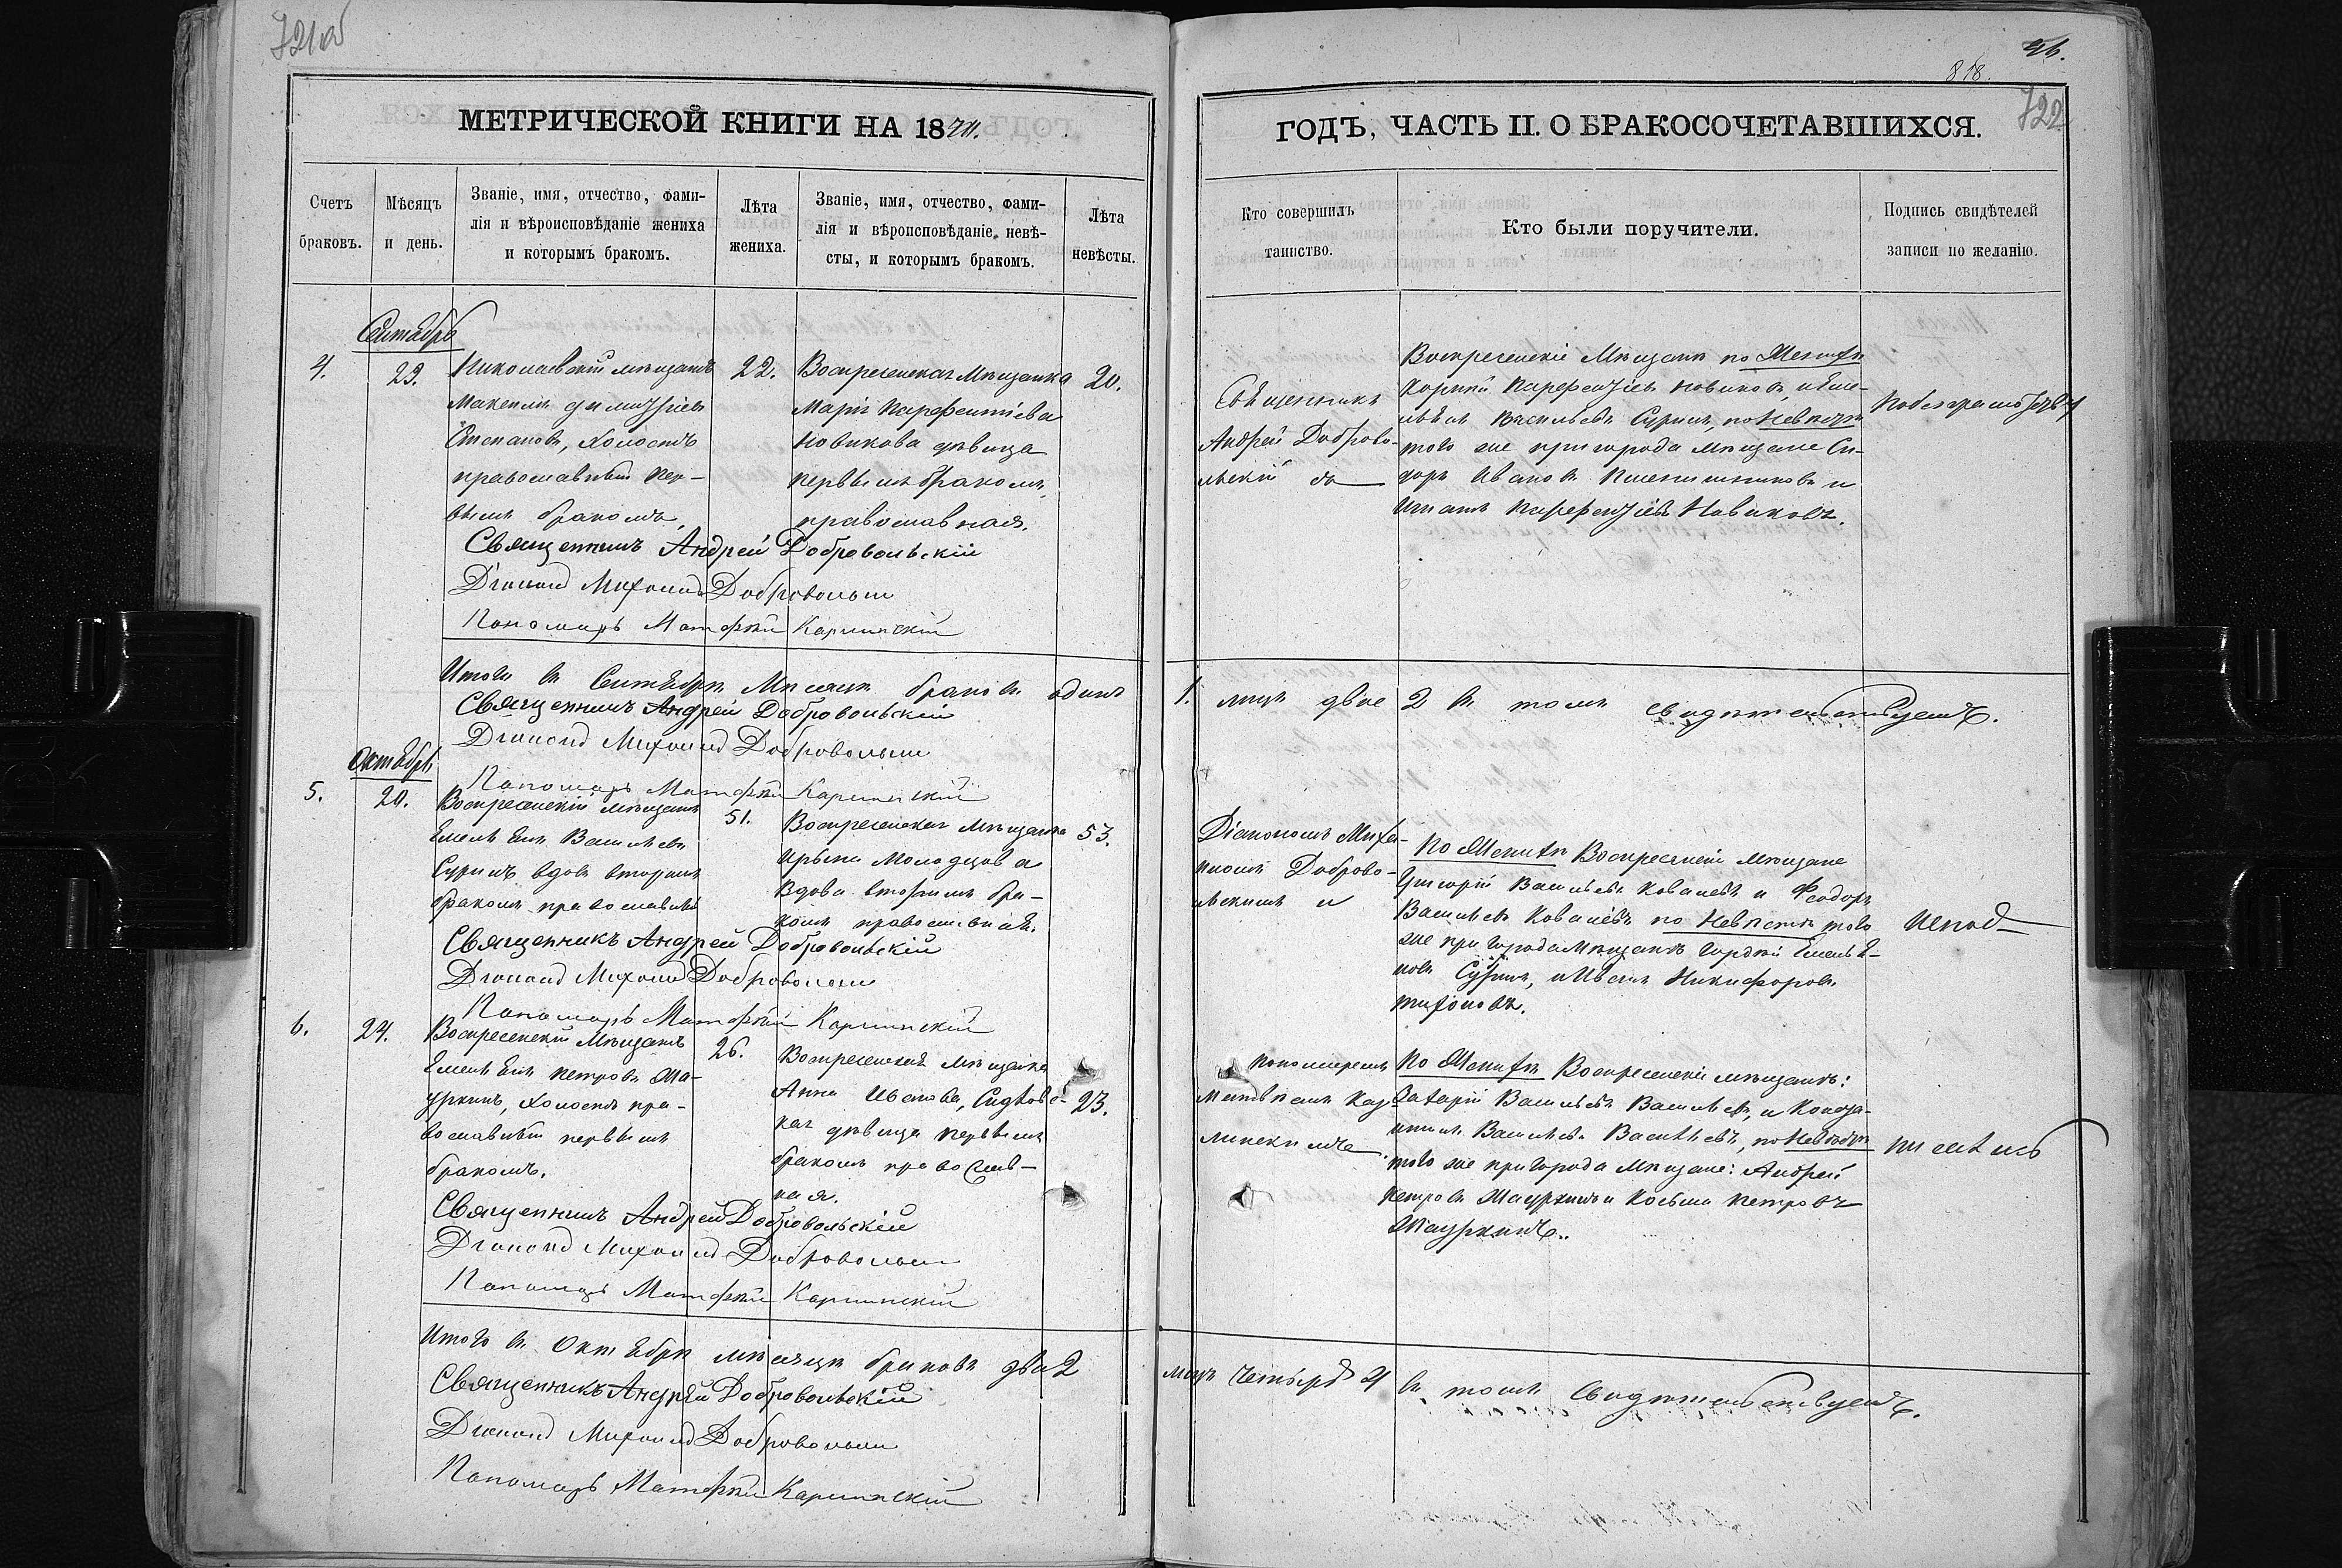 721об
МЕТРИЧЕСКОЙ КНИГИ НА 18
Счетъ браковъ.
Мѣсяцъ и день.
Званіе, имя, отчество, фами-
лія и вѣроисповѣданіе жениха
и которымъ бракомъ.
Лѣта жениха.
Званіе, имя, отчество, фами-
лія и вѣроисповѣданіе невѣ-
сты, и которымъ бракомъ.
Лѣта невѣсты.
Сентябрь
4.
23.
Николаевскій мѣщанинъ
Максимъ
Степановъ, холостъ
православный пер-
вымъ бракомъ,
22.
Воскресенская Мѣщанка
Марія Парфентіева
Новикова дѣвица
первымъ бракомъ,
православная.
20.
Священникъ Андрей Добровольскій
Діаконъ Михаилъ Добровольскій
Пономарь Матфей Карпинскій
Итого въ Сентябрѣ Мѣсяцѣ браковъ одинъ
Священникъ Андрей Добровольскій
Діаконъ Михаилъ Добровольскій
Пономарь Матфей Карпинскій
Октябрь
5.
20.
Воскресенскій мѣщанинъ
Емельянъ Васильевъ
Суринъ вдовъ вторымъ
бракомъ православный
51.
Воскресенская мѣщанка
Ирина Молодцова
вдова вторымъ бра-
комъ православная.
53.
Священникъ Андрей Добровольскій
Діаконъ Михаилъ Добровольскій
Пономарь Матфей Карпинскій
6.
24.
Воскресенскій Мѣщанинъ
Емельянъ Петровъ Ма-
уркинъ, холостъ пра-
вославный первымъ
бракомъ.
26.
Воскресенская мѣщанка
Анна Иванова,
кая дѣвица первымъ
бракомъ православ-
ная.
23.
Священникъ Андрей Добровольскій
Діаконъ Михаилъ Добровольскій
Пономарь Матфей Карпинскій
Итого въ Октябрѣ мѣсяцѣ браковъ два 2
Священникъ Андрей Добровольскій
Діаконъ Михаилъ Добровольскій
Пономарь Матфей Карпинскій
46.
818.
722
ГОДЪ, ЧАСТЬ II. О БРАКОСОЧЕТАВШИХСЯ.
Кто совершилъ таинство.
Кто были поручители.
Подпись свидѣтелей
записи по желанію.
Священникъ
Андрей Доброво-
льскій съ
Воскресенскіе Мѣщане по Женихѣ
Парфентіевъ Новиковъ, и Еме-
льянъ Васильевъ Суринъ, по Невѣстѣ
того же пригорода мѣщане Си-
доръ Ивановъ и
Игнатій Парфентіевъ Новиковъ.
1. лицъ двое 2 въ томъ свидѣтельствуемъ.
Діакономъ Миха-
иломъ Доброво-
льскимъ и
По Женихѣ Воскресенскіе мѣщане
Григорій Васильевъ Ковалевъ и Феодоръ
Васильевъ Ковалёвъ по Невѣстѣ того
же пригорода мѣщане Гордѣй Емелья-
новъ Суринъ, и Иванъ Никифоровъ
Тихоновъ.
Пономаремъ
Матвѣемъ Кар-
пинскимъ
По Женихѣ Воскресенскіе мѣщане:
Захарій Васильевъ Васильевъ, и
Васильевъ Васильевъ, по Невѣстѣ
того же пригорода Мѣщане: Андрей
Петровъ Мауркинъ и Косьма Петровъ
Мауркинъ..
лицъ четыре 4 въ томъ свидѣтельствуемъ.